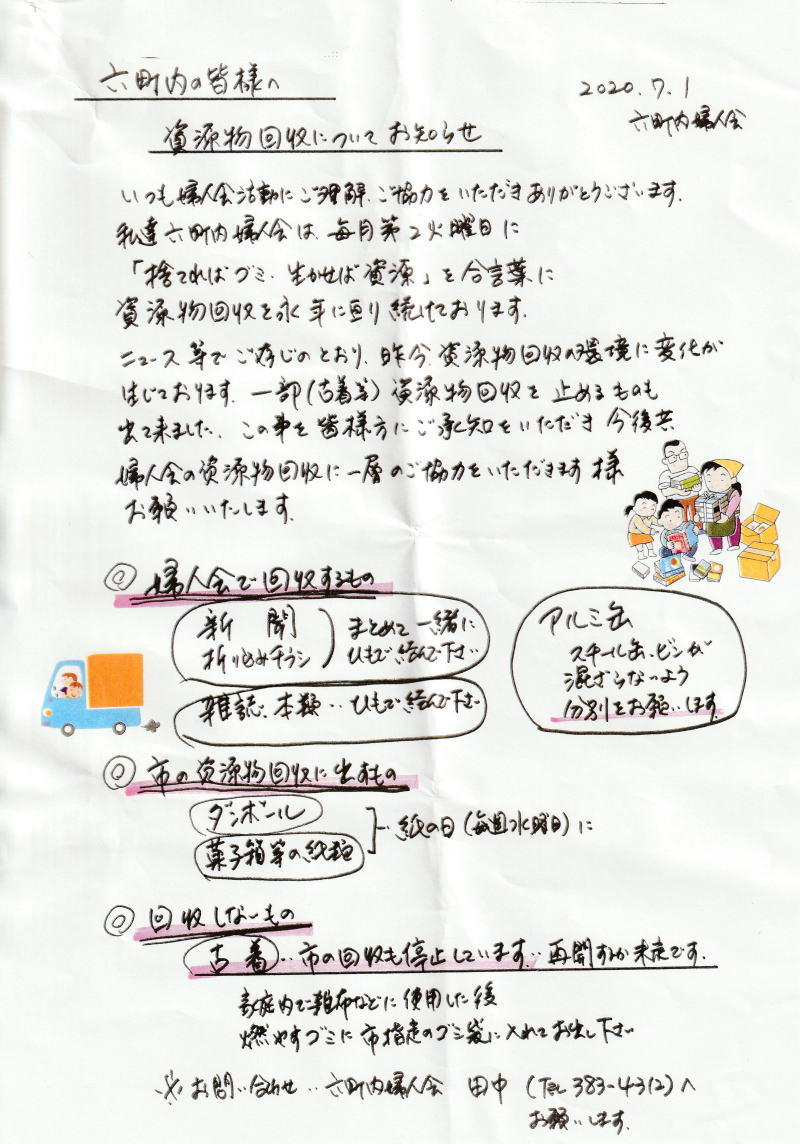 六町内の皆様へ
2020.7.1
六町内婦人会
資源物回収についてお知らせ
いつも婦人会活動にご理解、ご協力をいただきありがとうございます。
私達六町内婦人会は、毎月第2火曜日に
「捨てればゴミ・生かせば資源」を合言葉に
資源物回収を永年に亘り続けております。
ニュース等でご存じのとおり、昨今、資源物回収の環境に変化が
生じております。一部(古着等)資源物回収を止めるものも
出て来ました。この事を皆様方にご承知をいただき今後共
婦人会の資源物回収に一層のご協力をいただきます様
お願いいたします。
◎婦人会で回収するもの
新聞
折り込みチラシ
まとめて一緒に
ひもで結んで下さい
雑誌、本類‥ひもで結んで下さい
アルミ缶
スチール缶、ビンが
混ざらないよう
分別をお願いします。
◎市の資源物回収に出すもの
ダンボール
菓子箱等の紙類
紙の日(毎週水曜日)に
◎回収しないもの
古着‥市の回収も停止しています‥再開するか未定です。
家庭内で雑布などに使用した後
燃やすゴミに市指定のゴミ袋に入れてお出し下さい
※お問い合わせ‥六町内婦人会 田中 (TEL 383-4312)へ
お願いします。